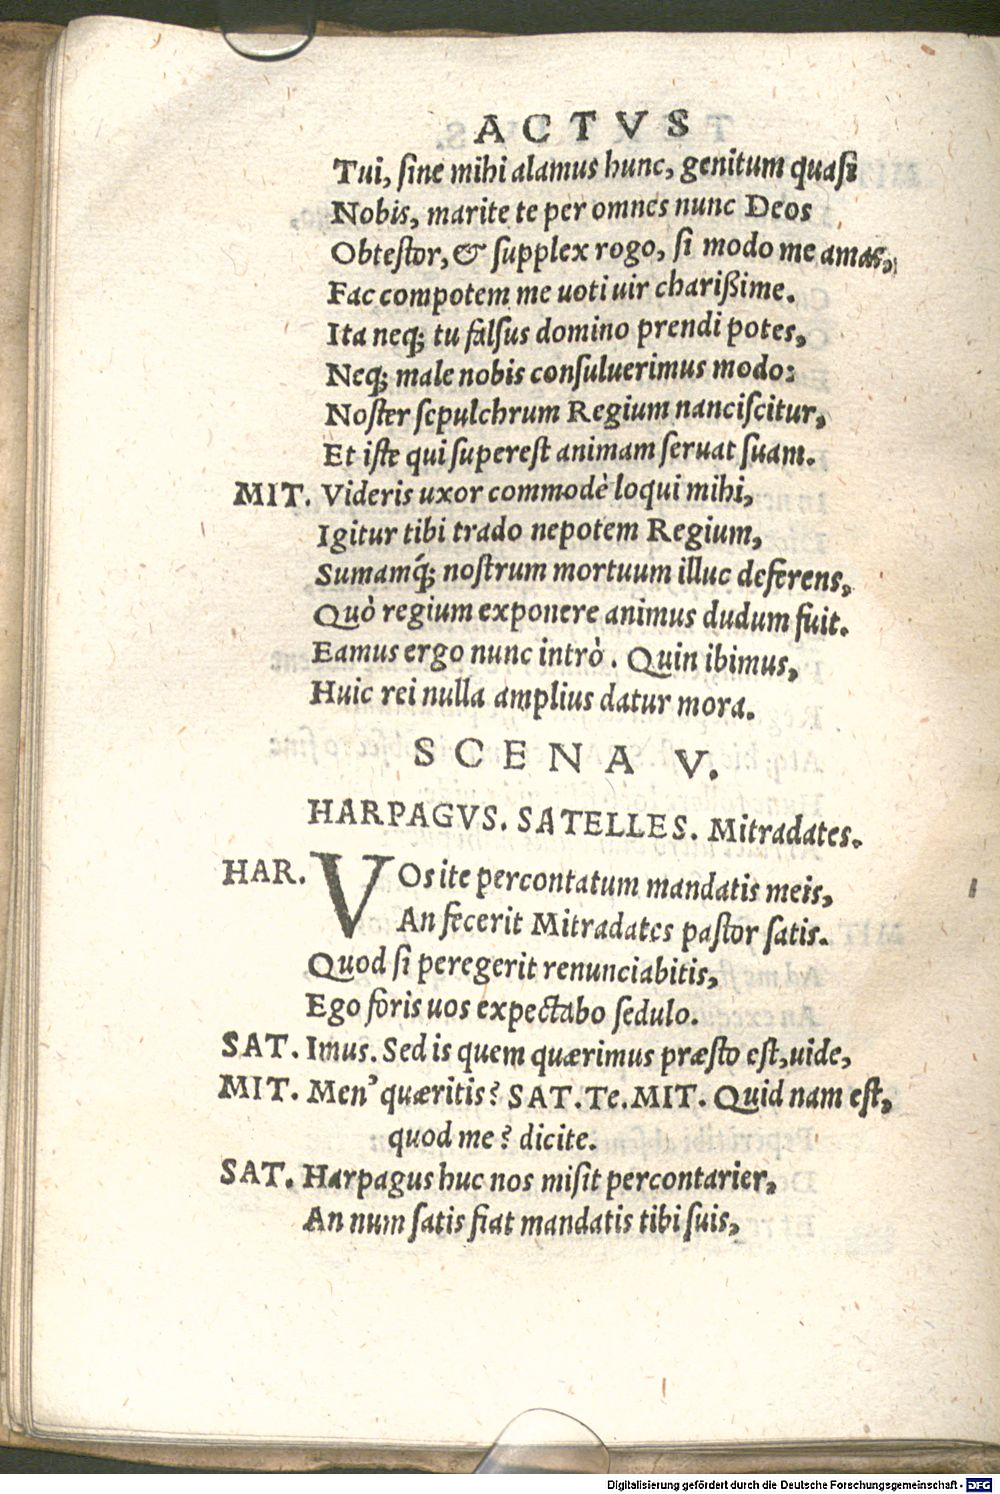 ACTVS
Tui, ſine mihi alamus hunc, genitum quaſi
Nobis, marite te per omnes nunc Deos
Obteſtor, & ſupplex rogo, ſi modo me amas,
Fac compotem me uoti uir charißime.
Ita neq; tu falſus domino prendi potes,
Neq; male nobis conſuluerimus modo:
Noſter ſepulchrum Regium nanciſcitur,
Et iſte qui ſupereſt animam ſeruat ſuam.
MIT. Videris uxor commodè loqui mihi,
Igitur tibi trado nepotem Regium,
Sumamq́; noſtrum mortuum illuc deferens,
Quò regium exponere animus dudum fuit.
Eamus ergo nunc intrò. Quin ibimus,
Huic rei nulla amplius datur mora.
SCENA V.
HARPAGVS. SATELLES. Mitradates.
HAR. VOs ite percontatum mandatis meis,
An fecerit Mitradates paſtor ſatis.
Quod ſi peregerit renunciabitis,
Ego foris uos expectabo ſedulo.
SAT. Imus. Sed is quem quærimus præſto eſt, uide,
MIT. Men' quæritis? SAT. Te. MIT. Quid nam eſt,
quod me? dicite.
SAT. Harpagus huc nos miſit percontarier,
An num ſatis fiat mandatis tibi ſuis,
Digitalisierung gefördert durch die Deutsche Forschungsgemeinschaft - DFG